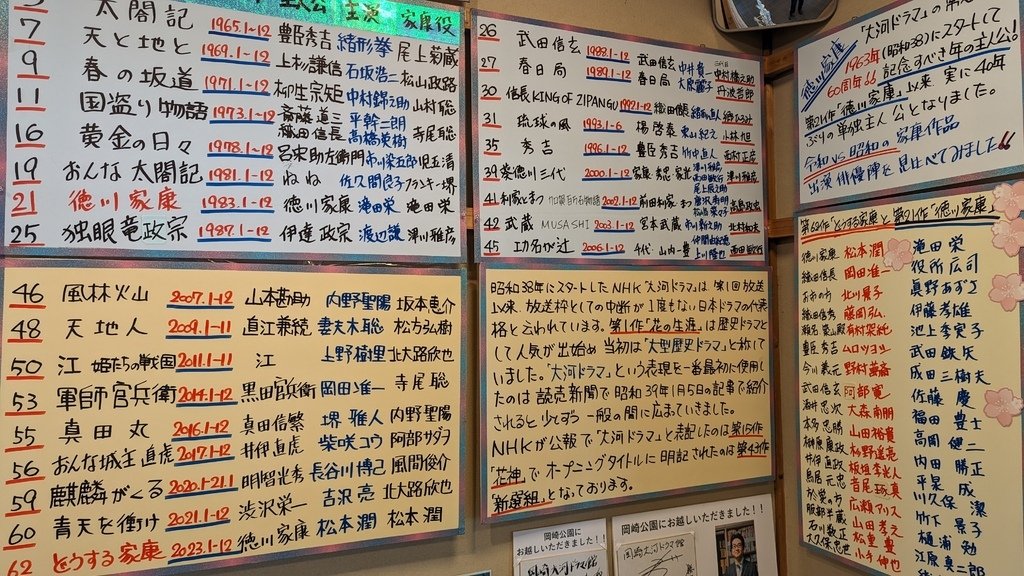 主演 家康役
太閤記 1965.1~12 豊臣秀吉 緒形拳 尾上菊蔵
7 天と地と 1969.1~12 上杉謙信 石坂浩二 松山政路
9 春の坂道 1971.1~12 柳生宗矩 中村錦之助 山村聡
11 国盗り物語 1973.1~12 斎藤道三 織田信長 平幹二朗 高橋英樹 寺尾聡
16 黄金の日々 1978.1~12 呂宋助左衛門 市川染五郎 児玉清
19 おんな太閤記 1981.1~12 ねね 佐久間良子 フランキー堺
21 徳川家康 1983.1~12 徳川家康 滝田栄 滝田栄
25 独眼竜政宗 1987.1~12 伊達政宗 渡辺謙 津川雅彦
26 武田信玄 1988.1~12 武田信玄 中井貴一
27 春日局 1989.1~12 春日局 大原麗子 丹波哲郎
30 信長KING OF ZIPANGU 1992.1~12 織田信長 緒形直人
31 琉球の風 1993.1~6 楊啓泰 東山紀之 小林旭
35 秀吉 1996.1~12 豊臣秀吉 竹中直人 西村正彦
39 葵徳川三代 2000.1~12 家康 秀忠 家光 津川雅彦
41 利家とまつ 加賀百万石物語 2002.1~12 前田利家 まつ 唐沢寿明 松嶋菜々子 高嶋政宏
42 武蔵 MUSASHI 2003.1~12 宮本武蔵 市川新之助 北村和夫
45 功名が辻 2006.1~12 千代 山内一豊 仲間由紀恵 上川隆也 西田敏行
46 風林火山 2007.1~12 山本勘助 内野聖陽 坂本恵介
48 天地人 2009.1~11 直江兼続 妻夫木聡 松方弘樹
50 江 姫たちの戦国 2011.1~11 江 上野樹里 北大路欣也
53 軍師官兵衛 2014.1~12 黒田官兵衛 岡田准一 寺尾聡
55 真田丸 2016.1~12 真田信繁 堺雅人 内野聖陽
56 おんな城主直虎 2017.1~12 井伊直虎 柴咲コウ 阿部サダヲ
59 麒麟がくる 2020.1~21.1 明智光秀 長谷川博己 風間俊介
60 青天を衝け 2021.1~12 渋沢栄一 吉沢亮 北大路欣也
62 どうする家康 2023.1~12 徳川家康 松本潤 松本潤
昭和38年にスタートしたNHK「大河ドラマ」は第1回放送
以来、放送枠としての中断が1度もない日本ドラマの代表
格と云われています。第1作「花の生涯」は歴史ドラマと
して人気が出始め 当初は「大型歴史ドラマ」と称して
いました。「大河ドラマ」という表現を一番最初に使用し
たのは読売新聞で昭和39年1月5日の記事で紹介
されると少しずつ一般の間に広まっていきました。
NHKが公報で「大河ドラマ」と表記したのは第15作
「花神」でオープニングタイトルに明記されたのは第43作
「新選組」となっております。
徳川家康 「大河ドラマ」の
1963年(昭和38)にスタートして
60周年!! 記念すべき年の主人公!
第21作「徳川家康」以来 実に40年
ぶりの単独主人公となりました。
令和 vs 昭和の家康作品
出演俳優陣を見比べてみました!!
第62作「どうする家康」と第21作「徳川家康」
徳川家康 松本潤 滝田栄
織田信長 岡田准一 役所広司
お市の方 北川景子 真野あずさ
織田信秀 藤岡弘、 伊藤孝雄
瀬名 築山殿 有村架純 池上季実子
豊臣秀吉 ムロツヨシ 武田鉄矢
今川義元 野村萬斎 成田三樹夫
武田信玄 阿部寛 佐藤慶
酒井忠次 大森南朋 福田豊士
本多忠勝 山田裕貴 高岡健二
榊原康政 杉野遥亮 内田勝正
井伊直政 板垣李光人 平泉成
鳥居元忠 音尾琢真 川久保潔
於愛の方 広瀬アリス 竹下景子
服部半蔵 山田孝之 樋浦勉
石川数正 松重豊 江原真二郎
大久保忠世 小手伸也
岡崎公園に
お越しいただきました!!
岡崎公園にお越しいただきました!!
岡崎大河ドラマ館